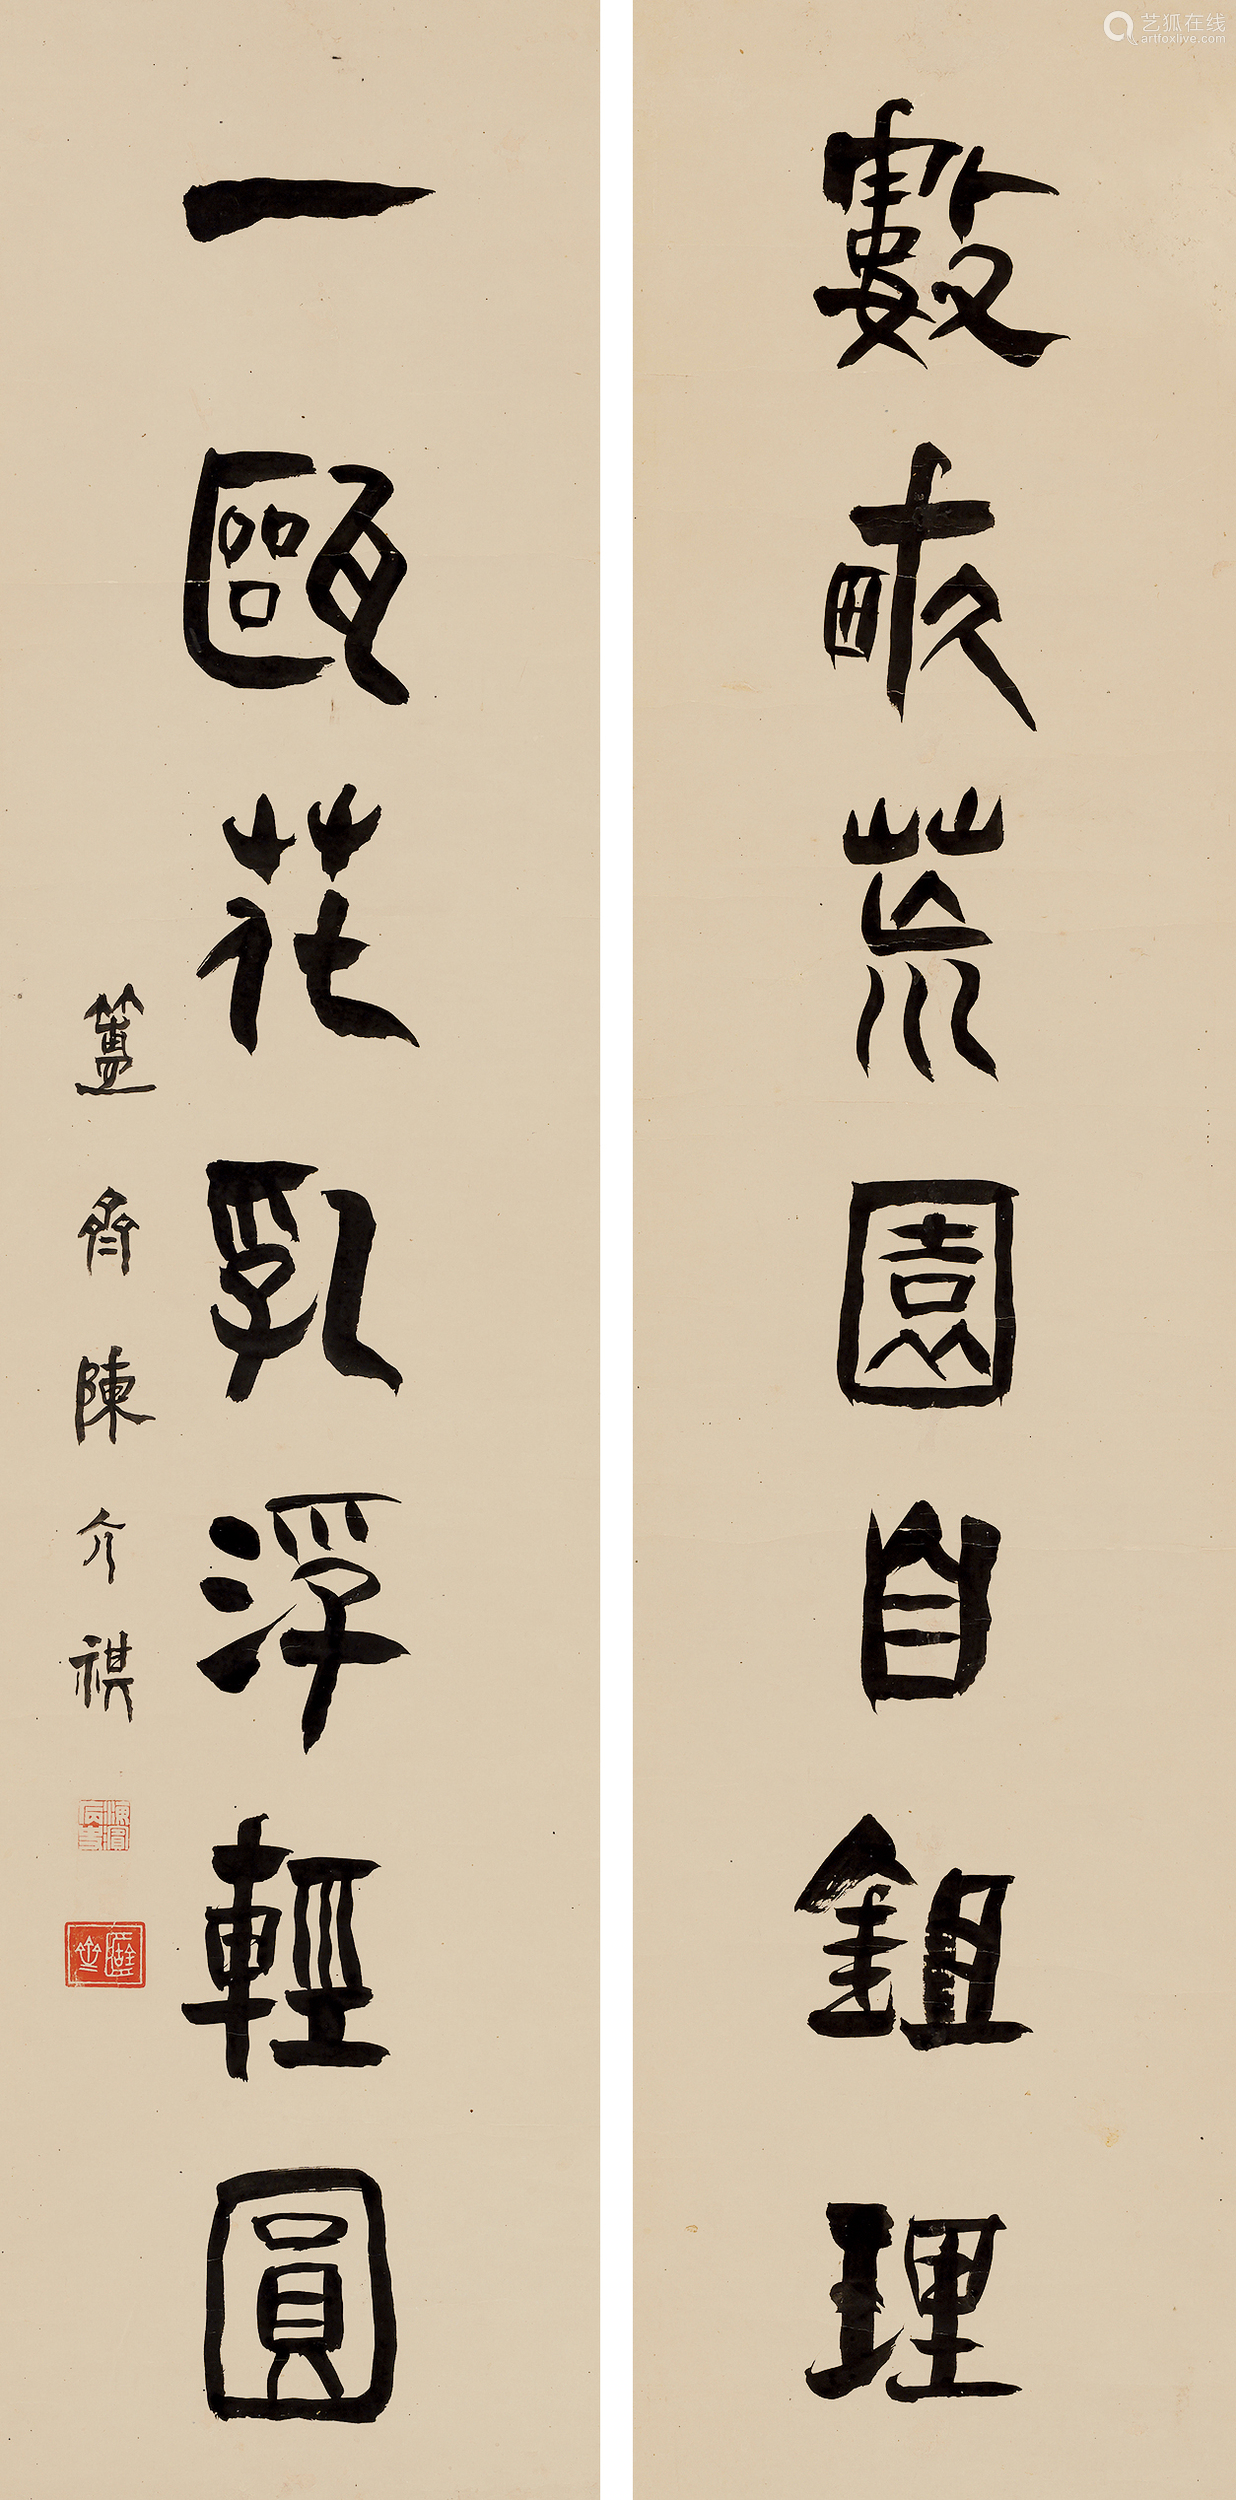 數畝荒園自鉏理
一甌花乳浮輕圓
簠齋陳介祺
艺狐在线
artfoxlive.com